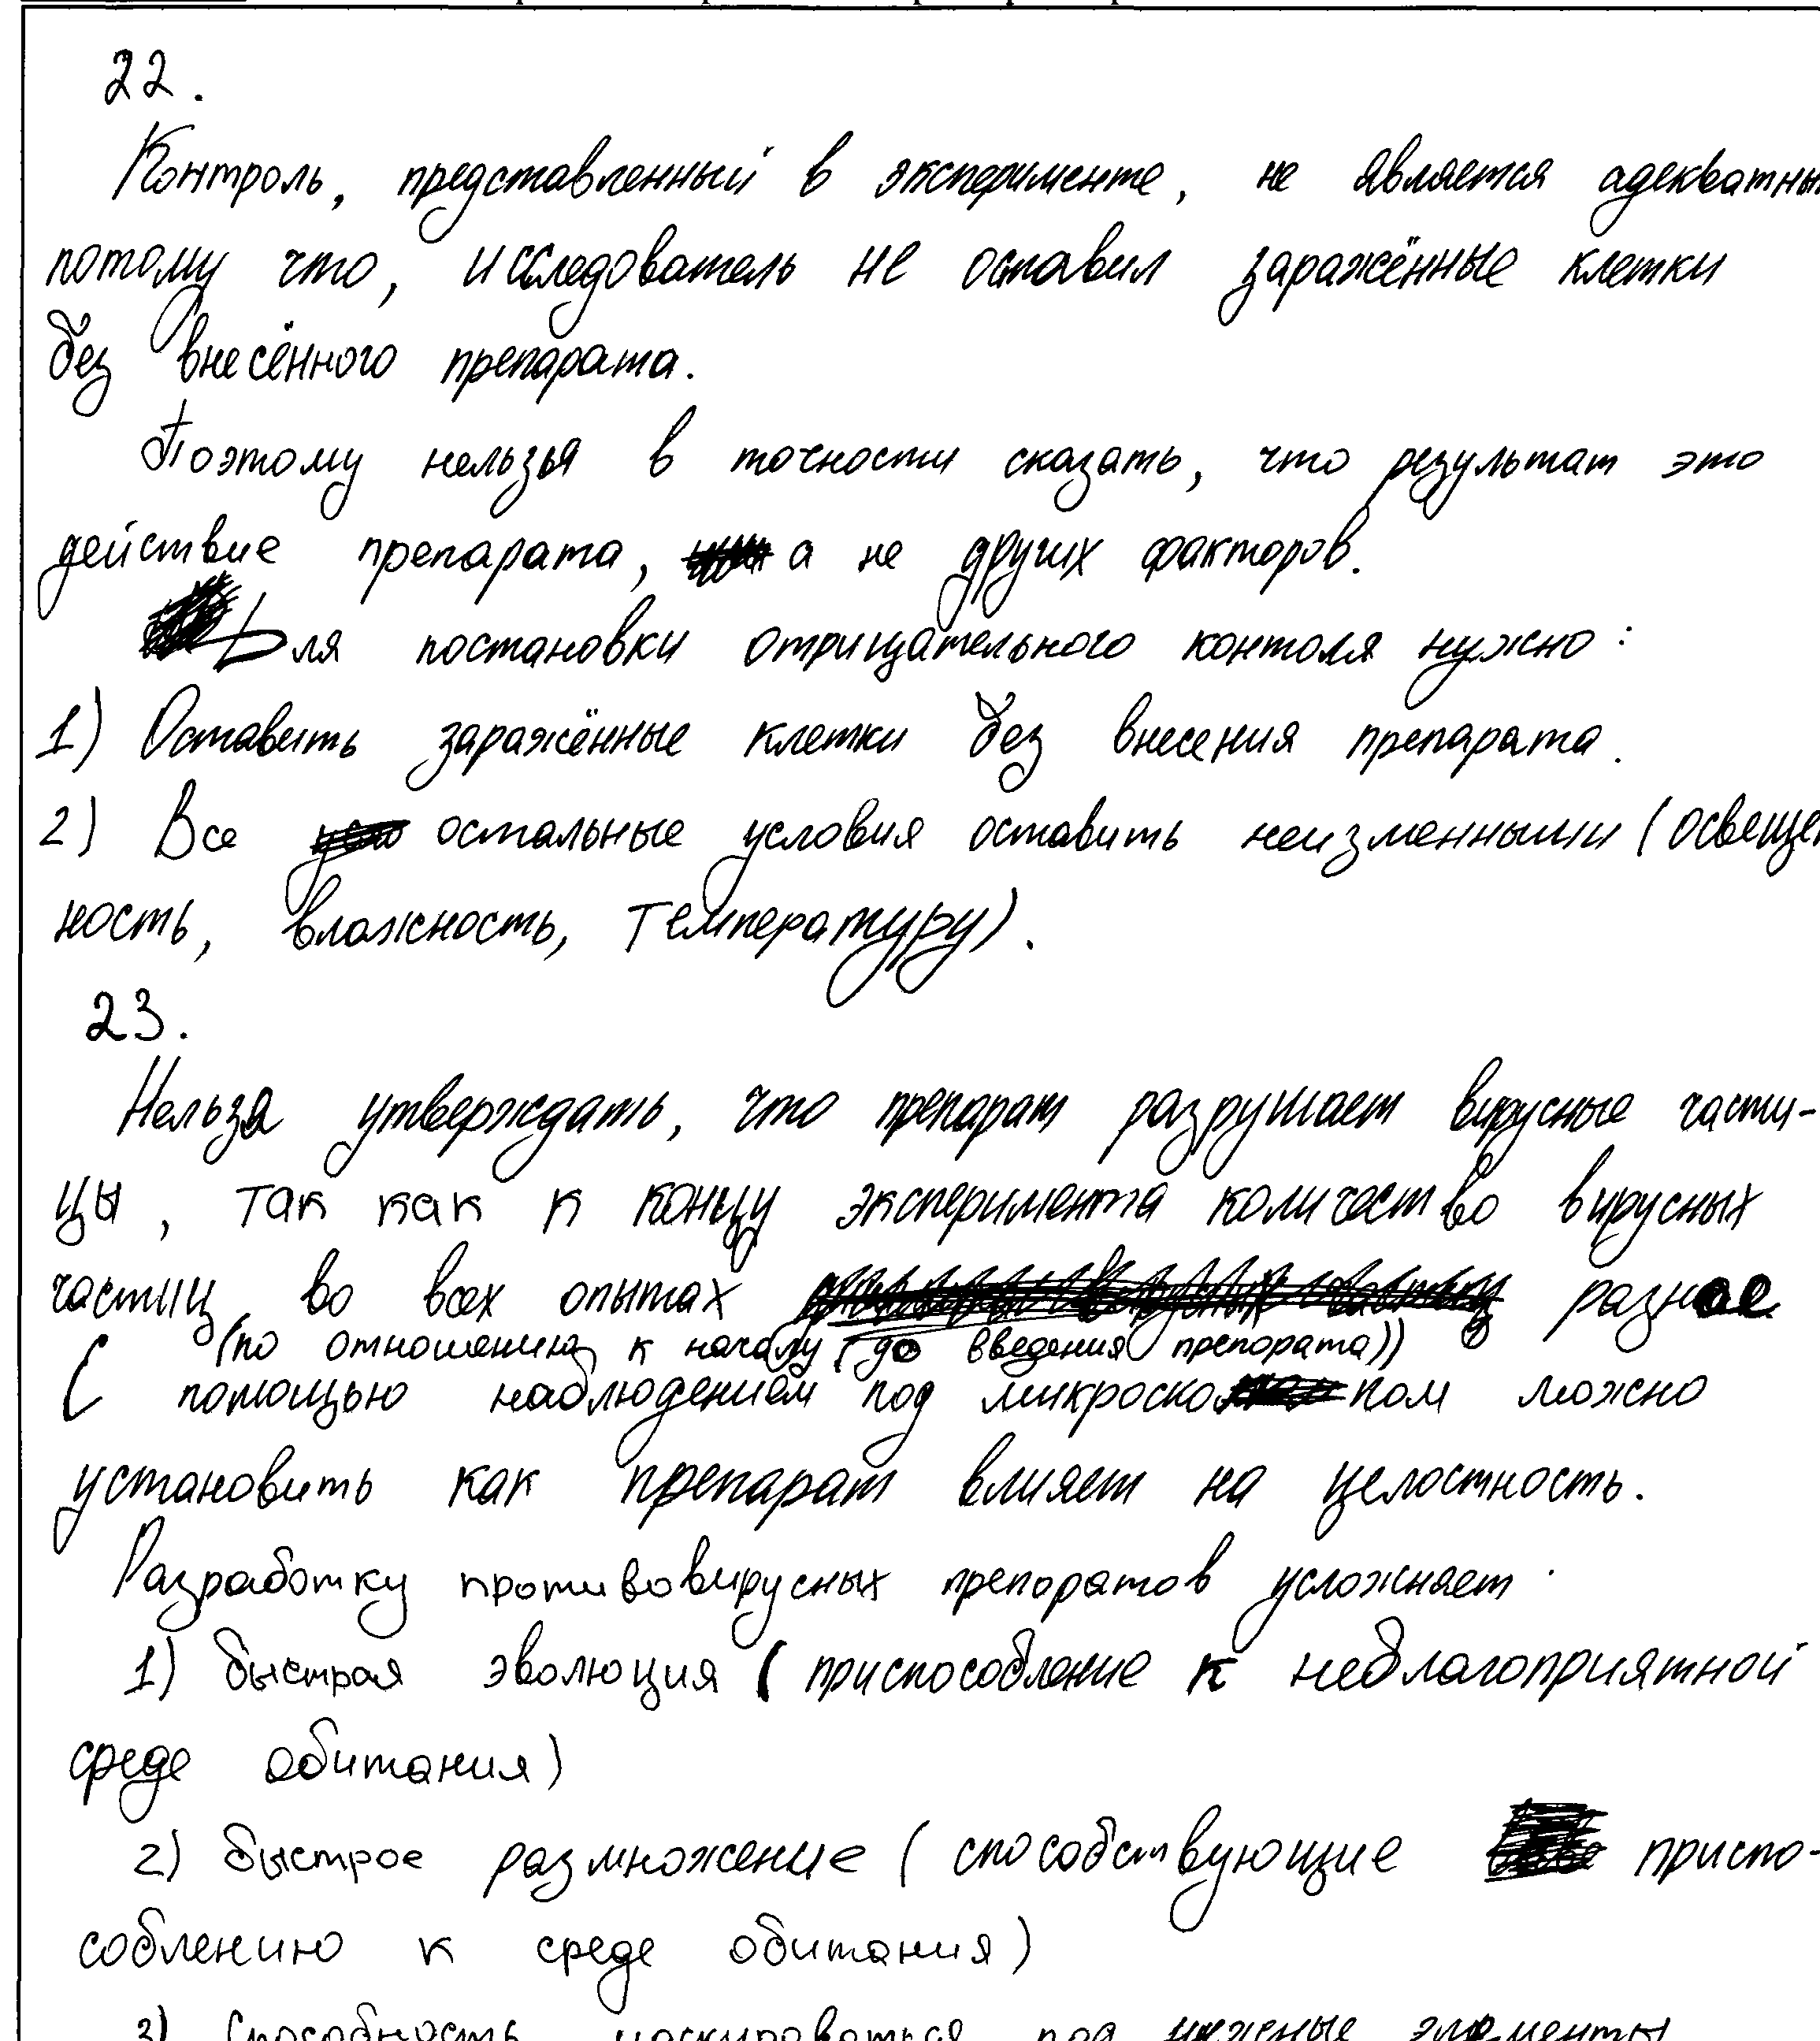 22.
Контроль, представленный в эксперименте, не является адекватны
потому что, исследователь не оставил заражённые клетки
без внесённого препарата.
Поэтому нельзя в точности сказать, что результат это
действие препарата, а не других факторов.
Для постановки отрицательного контоля нужно:
1) Оставить заражённые клетки без внесения препарата.
2) Все остальные условия оставить неизменными (освещен
ность, влажность, температуру).
23.
Нельзя утверждать, что препарат разрушает вирусные части-
цы, так как к концу эксперимента количество вирусных
частиц во всех опытах разное
(по отношению к началу (до введения препората))
С помощью наблюдением под микроскопом можно
установить как препарат влияет на целостность.
Разработку противовирусных препоратов усложняет:
1) быстрая эволюция (приспособление к неблагоприятной
среде обитания)
2) быстрое размножение (способствующие приспо-
соблению к среде обитания)
3) Способность маскироваться под нужные элементы